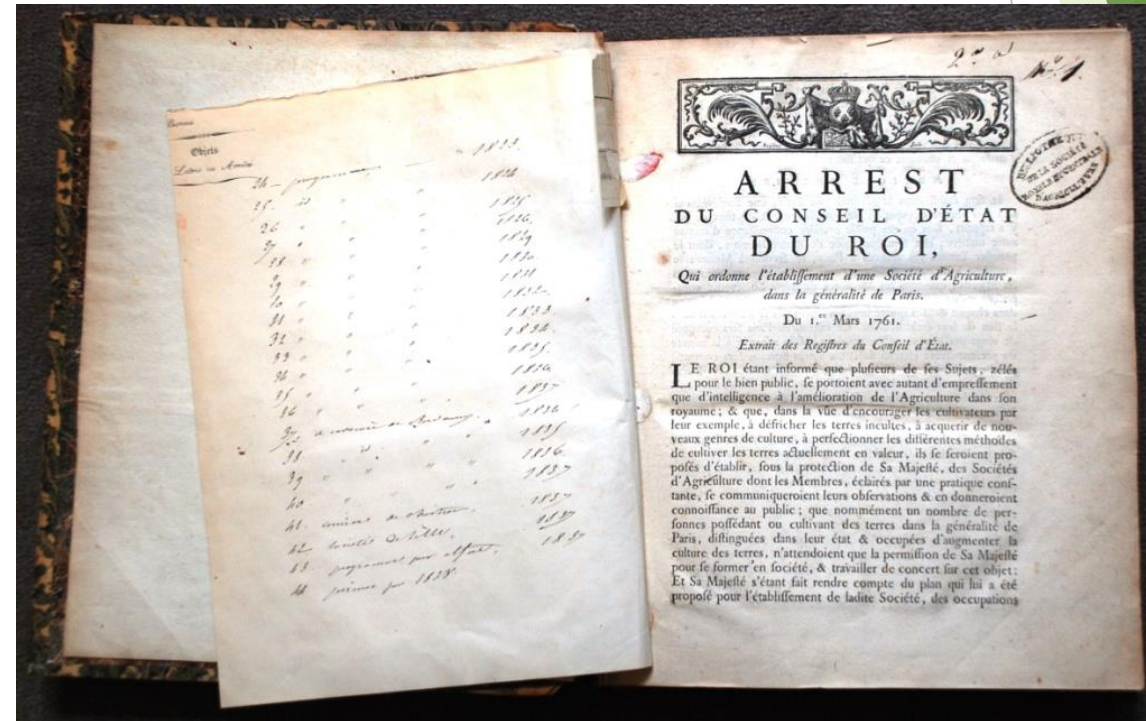 Objets
24 - programme — " 1823.
25 - id " 1824
26 " " " 1825
" " " 1826.
" " " 1829
" " " 1830
" " " 1831
" " " 1832.
31 " " " 1833
32 " " " 1834.
33 " " " 1835.
" " " 1836
" " " 1837
1836
38 1835
39 " " " " 1836.
40 " " " " 1837
1837
42 société de Lille. 1837
43. programme par 1837
44 primes par 1838.
2.e
N.o 1.
BIBLIOTHEQUE
DE LA SOCIÉTÉ
ROYALE ET CENTRALE
D'AGRICULTURE
ARREST
DU CONSEIL D'ÉTAT
DU ROI,
Qui ordonne l'établiſſement d'une Société d'Agriculture,
dans la généralité de Paris.
Du 1.er Mars 1761.
Extrait des Regiſtres du Conſeil d'État.
LE ROI étant informé que pluſieurs de ſes Sujets, zélés
pour le bien public, ſe portoient avec autant d'empreſſement
que d'intelligence à l'amélioration de l'Agriculture dans ſon
royaume; & que, dans la vûe d'encourager les cultivateurs par
leur exemple, à défricher les terres incultes, à acquerir de nou-
veaux genres de culture, à perfectionner les différentes méthodes
de cultiver les terres actuellement en valeur, ils ſe ſeroient pro-
poſés d'établir, ſous la protection de Sa Majeſté, des Sociétés
d'Agriculture dont les Membres, éclairés par une pratique conſ-
tante, ſe communiqueroient leurs obſervations & en donneroient
connoiſſance au public; que nommément un nombre de per-
ſonnes poſſédant ou cultivant des terres dans la généralité de
Paris, diſtinguées dans leur état & occupées d'augmenter la
culture des terres, n'attendoient que la permiſſion de Sa Majeſté
pour ſe former en ſociété, & travailler de concert ſur cet objet:
Et Sa Majeſté s'étant fait rendre compte du plan qui lui a été
propoſé pour l'établiſſement de ladite Société, des occupations